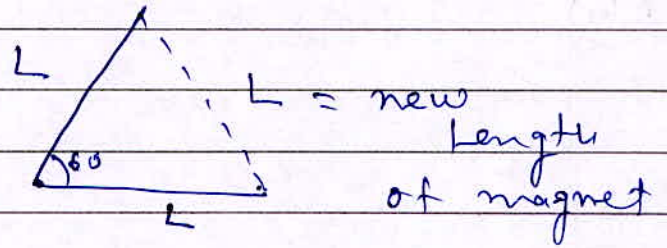 L
L = new
Length
60
of magnet
L